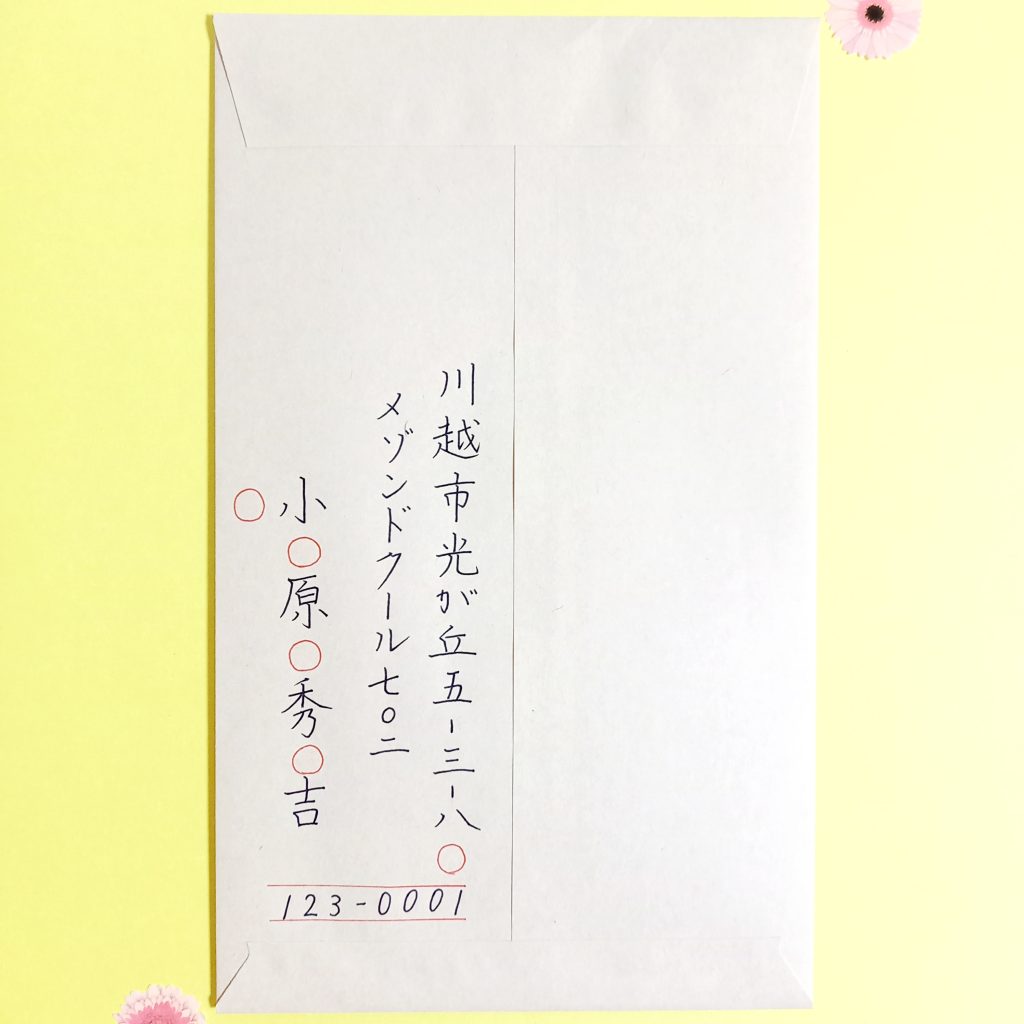 川越市光が丘五-三-八
メゾンドクール七〇二
小原秀吉
123-0001